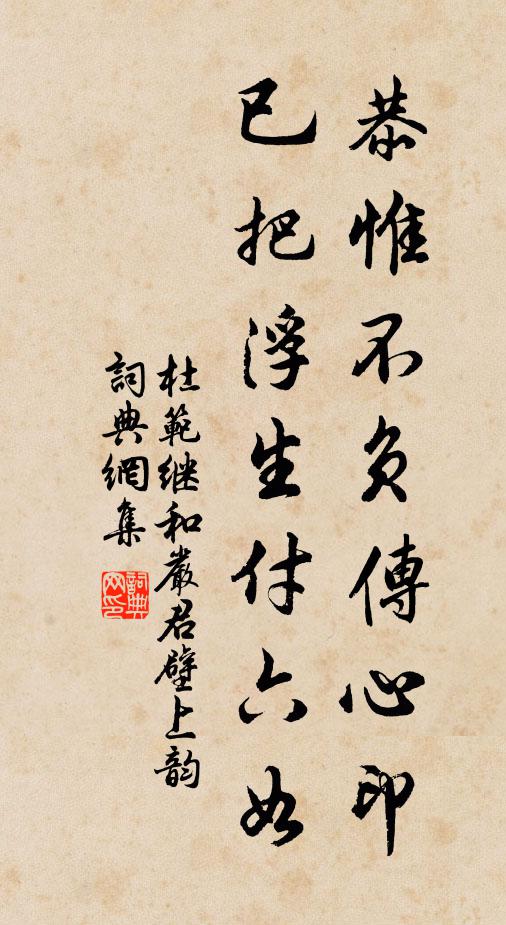 恭惟不負傳心印
已把浮生付六如
杜範继和嚴君壁上韵
詞典網集
詞典网印